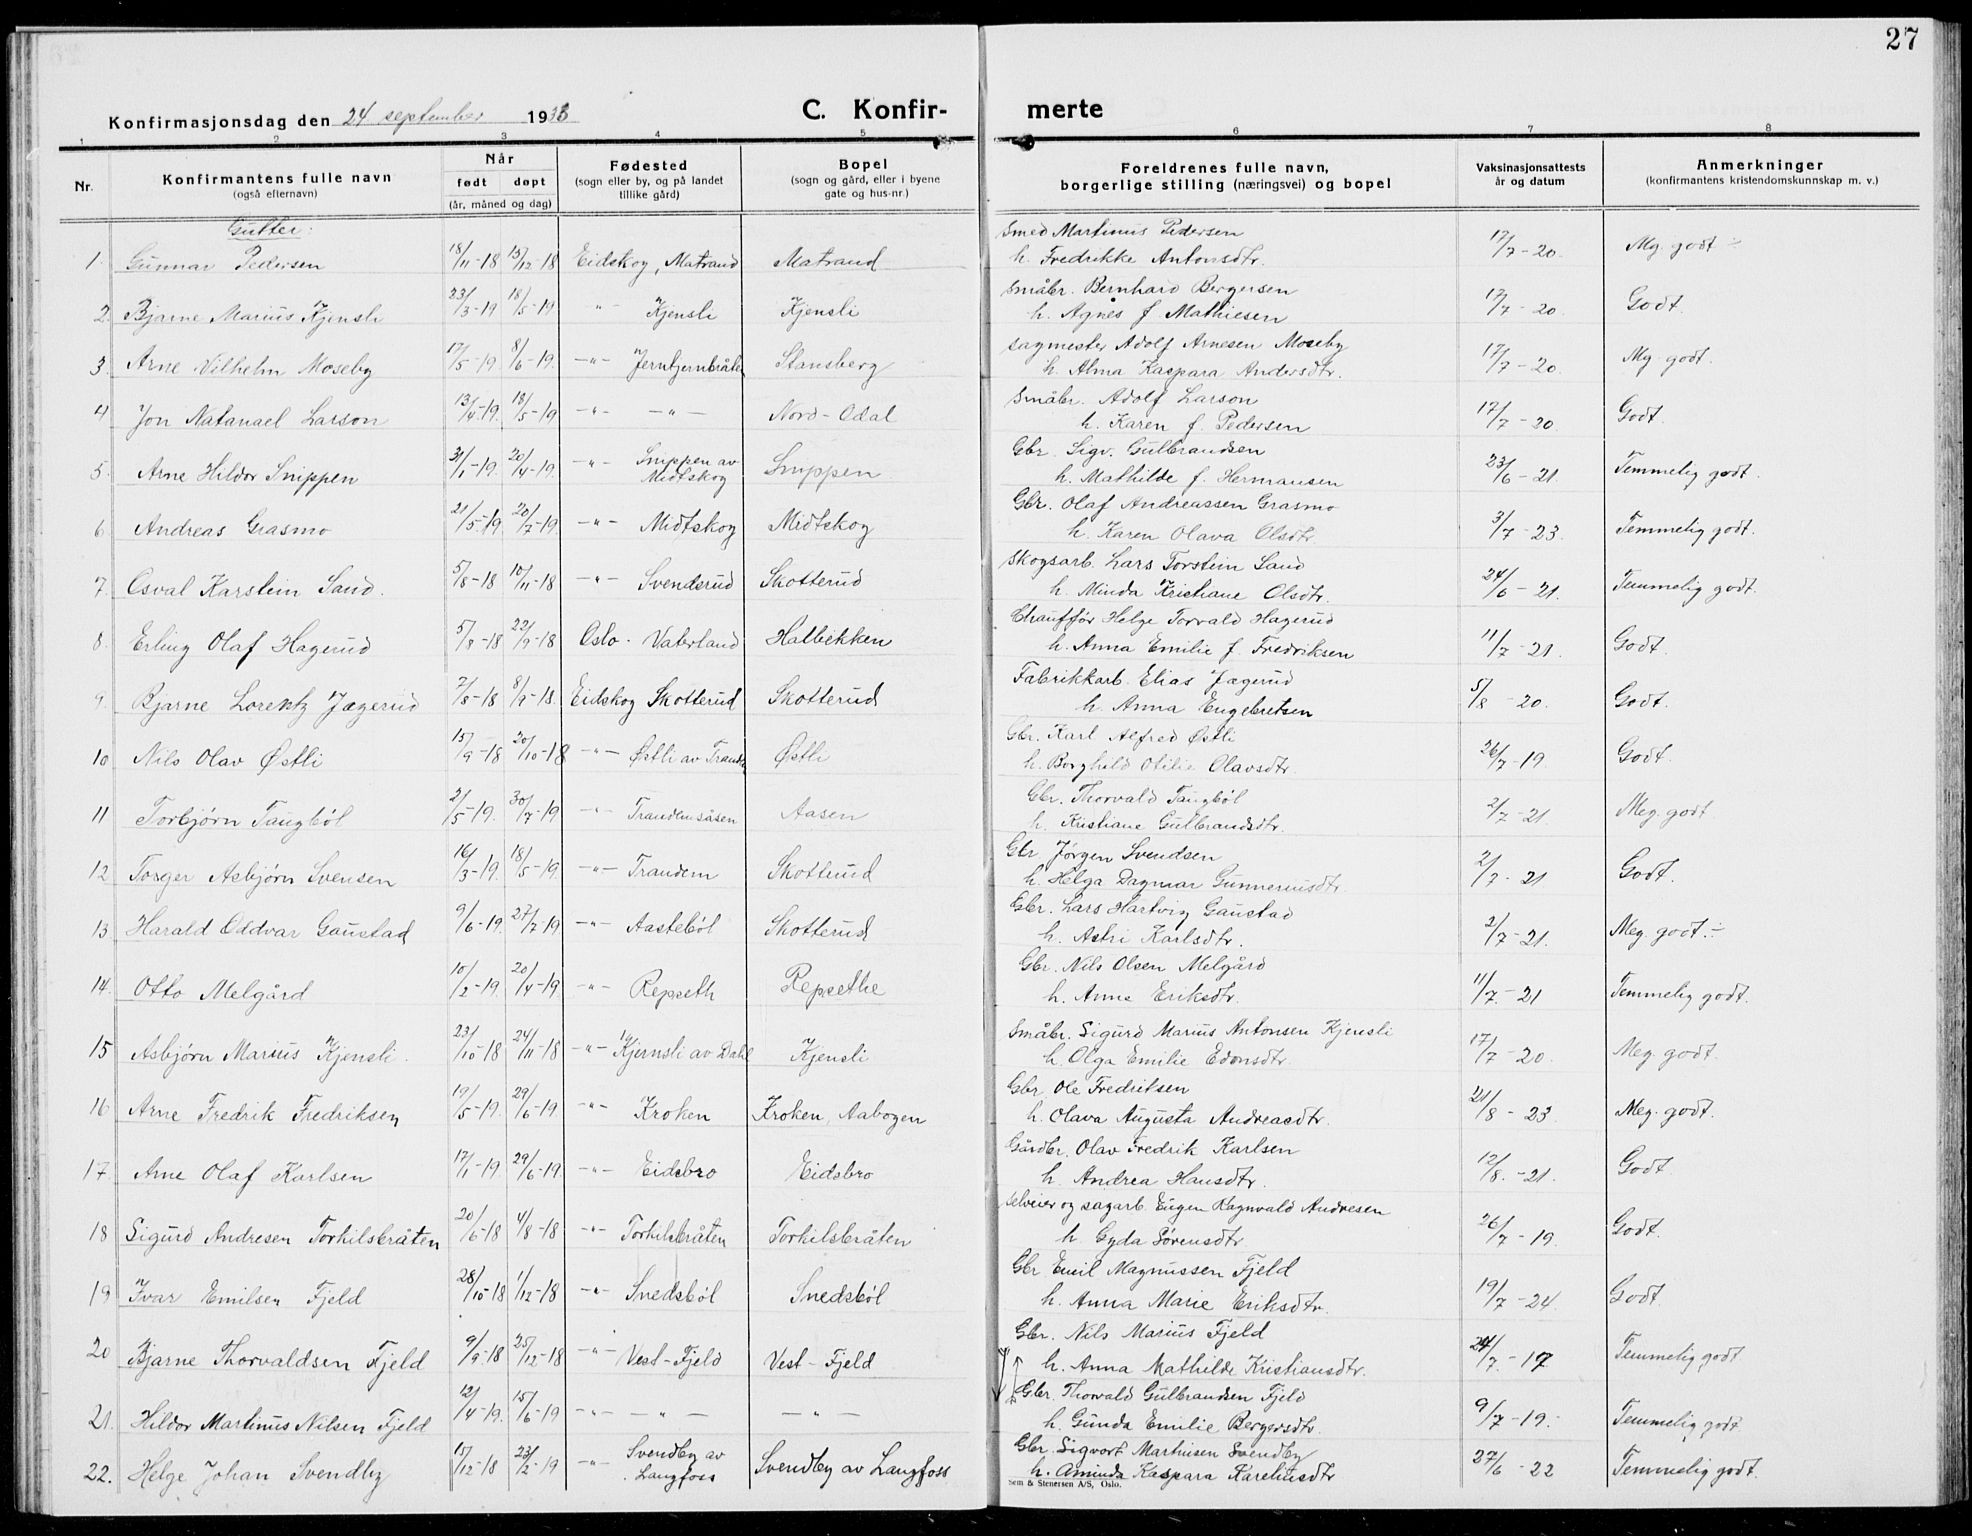 27
Konfirmasjonsdag den 24 september 1933 C. Konfir- merte
1 2 3 4 5 6 7 8
Nr. Konfirmantens fulle navn (også efternavn) Når født døpt (år, måned og dag) Fødested (sogn eller by, og på landet tillike gård) Bopel (sogn og gård, eller i byene gate og hus-nr.) Foreldrenes fulle navn, borgerlige stilling (næringsvei) og bopel Vaksinasjonsattests år og datum Anmerkninger (konfirmantens kristendomskunnskap m. v.)
Gutter:
Smed Martinus Pedersen
1 Gunnar Pedersen 18/11-18 15/12-18 Eidskog, Matrand Matrand h. Fredrikke Antonsdtr. 17/7-20. Mg. godt ÷
Småbr. Bernhard Bergersen
2. Bjarne Marius Kjensli 23/3-19 18/5-19 -"- Kjensli Kjensli h. Agnes f Mathiesen 17/7-20. Godt.
Sagmester Adolf Arnesen Moseby
3. Arne Vilhelm Moseby 17/5-19. 8/6-19. -"- Jerntjernbråten Stansberg h. Alma Kaspara Andersdtr. 17/7-20. Mg. godt.
Småbr. Adolf Larson
4 Jon Natanael Larson 13/4-19. 18/5-19 -"- -"- Nord-Odal h. Karen f. Pedersen 17/7-20. Godt.
Gbr. Sigv. Gulbrandsen
5. Arne Hildor Snippen 31/1-19. 20/4-19 -"- Snippen av Midtskog Snippen h. Mathilde f. Hermansen 23/6-21. Temmelig godt.
Gbr. Olaf Andreassen Grasmo
6. Andreas Grasmo 21/5-19. 20/7-19 -"- Midtskog Midtskog h. Karen Olava Olsdtr. 3/7-23. Temmelig godt.
Skogsarb. Lars Torstein Sand
7. Osval Karstein Sand. 5/8-18 10/11-18 -"- Svenderud Skotterud h. Minda Kristiane Olsdtr. 24/6-21. Temmelig godt.
Chauffør Helge Torvald Hagerud
8. Erling Olaf Hagerud 5/8-18 22/9-18 Oslo. Vaterland Halbekken h. Anna Emilie f. Fredriksen 11/7-21. Godt.
Fabrikkarb. Elias Jægerud
9. Bjarne Lorentz Jægerud 7/8-18 8/9-18. Eidskog Skotterud Skotterud h. Anna Engebretsen 5/8-20. Godt.
Gbr. Karl Alfred Østli
10 Nils Olav Østli 15/9-18 20/10-18 -"- Østli av Trandem Østli h. Borghild Otilie Olavsdtr. 26/7-19. Godt.
Gbr. Thorvald Taugbøl
11 Torbjørn Taugbøl 2/5-19. 30/7-19 -"- Trandemsåsen Aasen h. Kristiane Gulbrandsdtr. 2/7-21. Meg. godt
Gbr Jørgen Svendsen
12 Torger Asbjørn Svensen 16/3-19. 18/5-19. -"- Trandem Skotterud h. Helga Dagmar Gunneriusdtr. 2/7-21 Godt.
Gbr. Lars Hartvig Gaustad
13 Harald Oddvar Gaustad 9/6-19. 27/7-19 -"- Aastebøl Skotterud h. Astri Karlsdtr. 2/7-21. Meg. godt.÷
Gbr. Nils Olsen Melgård
14. Otto Melgård 10/2-19. 20/4-19. -"- Repseth Repsethe h. Anne Eriksdtr. 11/7-21 Temmelig godt.
Småbr. Sigurd Marius Antonsen Kjensli
15 Asbjørn Marius Kjensli. 23/10-18 24/11-18 -"- Kjernsli av Dahl Kjensli h. Olga Emilie Edonsdtr. 17/7-20. Meg. godt.
Gbr. Ole Fredriksen
16 Arne Fredrik Fredriksen 19/5-19. 29/6-19 -"- Kroken Kroken, Aabogen h. Olava Augusta Andreasdtr. 21/8-23 Meg. godt.
Gårdbr. Olav Fredrik Karlsen
17. Arne Olaf Karlsen 17/1-19. 29/6-19. -"- Eidsbro Eidsbro h. Andrea Hansdtr. 12/8.-21. Godt.
Selveier og sagarb. Eugen Ragnvald Andresen
18 Sigurd Andresen Torkilsbråten 20/6-18 4/8-18 -"- Torkilsbråten Torkilsbråten h. Gyda Sørensdtr. 26/7-19. Godt.
Gbr Emil Magnussen Fjeld
19 Ivar Emilsen Fjeld 28/10-18 1/12-18 -"- Snedsbøl Snedsbøl h. Anna Marie Eriksdtr. 19/7-24. Godt.
Gbr. Nils Marius Fjeld
20 Bjarne Thorvaldsen Fjeld 9/9-18 25/12-18 -"- Vest-Fjeld Vest-Fjeld h. Anna Mathilde Kristiansdtr. 24/7-17 Temmelig godt
Gbr. Thorvald Gulbrandsen Fjeld
21. Hildor Martinus Nilsen Fjeld 12/4-19. 15/6-19 -"- -"- -"- h. Gunda Emilie Bergersdtr. 9/7-19. Temmelig godt
Gbr. Sigvort Marthisen Svendby
22. Helge Johan Svendby 15/12-18 23/2-19 -"- Svendby av Langfoss Svendby av Langfoss h. Aminda Kaspara Kareliusdtr 27/6-22 Temmelig godt.
Sem & Stenersen A/S, Oslo.